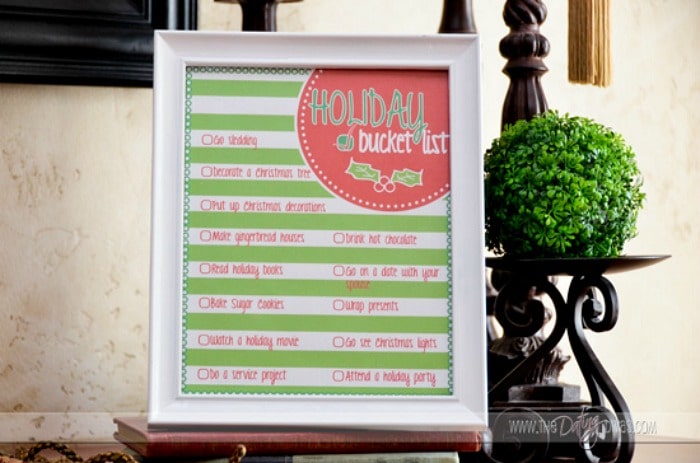 HOLIDAY
bucket list
Go Sledding
Decorate a Christmas tree
Put up Christmas decorations
Make gingerbread houses
Drink hot chocolate
Read holiday books
Go on a date with your
spouse
Bake Sugar Cookies
Wrap presents
Watch a holiday movie
Go see Christmas lights
Do a service project
Attend a holiday party
WWW.THEDatingDIVAS.COM